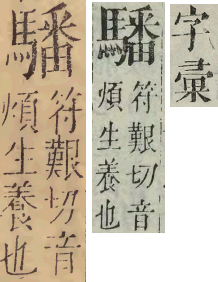 字彙
䮳
符艱切音
煩生養也
䮳
符艱切音
煩生養也